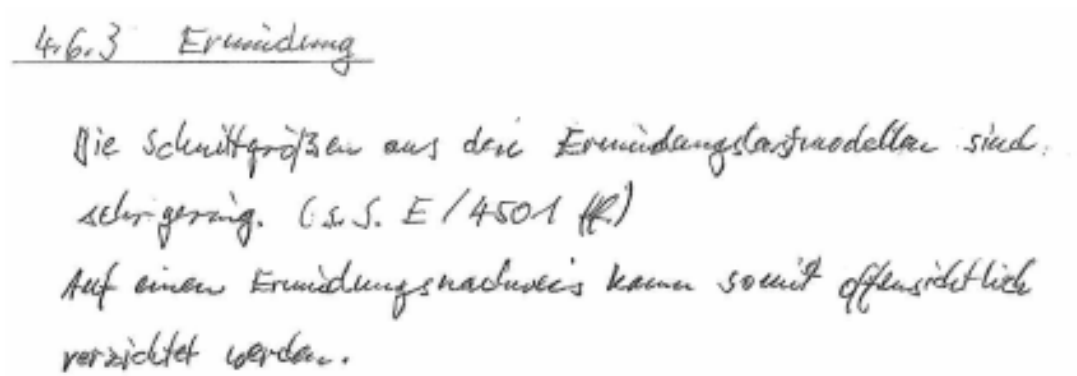 4.6.3 Ermüdung
Die Schnittgrößen aus den Ermüdungslastmodellen sind
sehr gering. (s. S. E/4501 ff.)
Auf einen Ermüdungsnachweis kann somit offensichtlich
verzichtet werden.